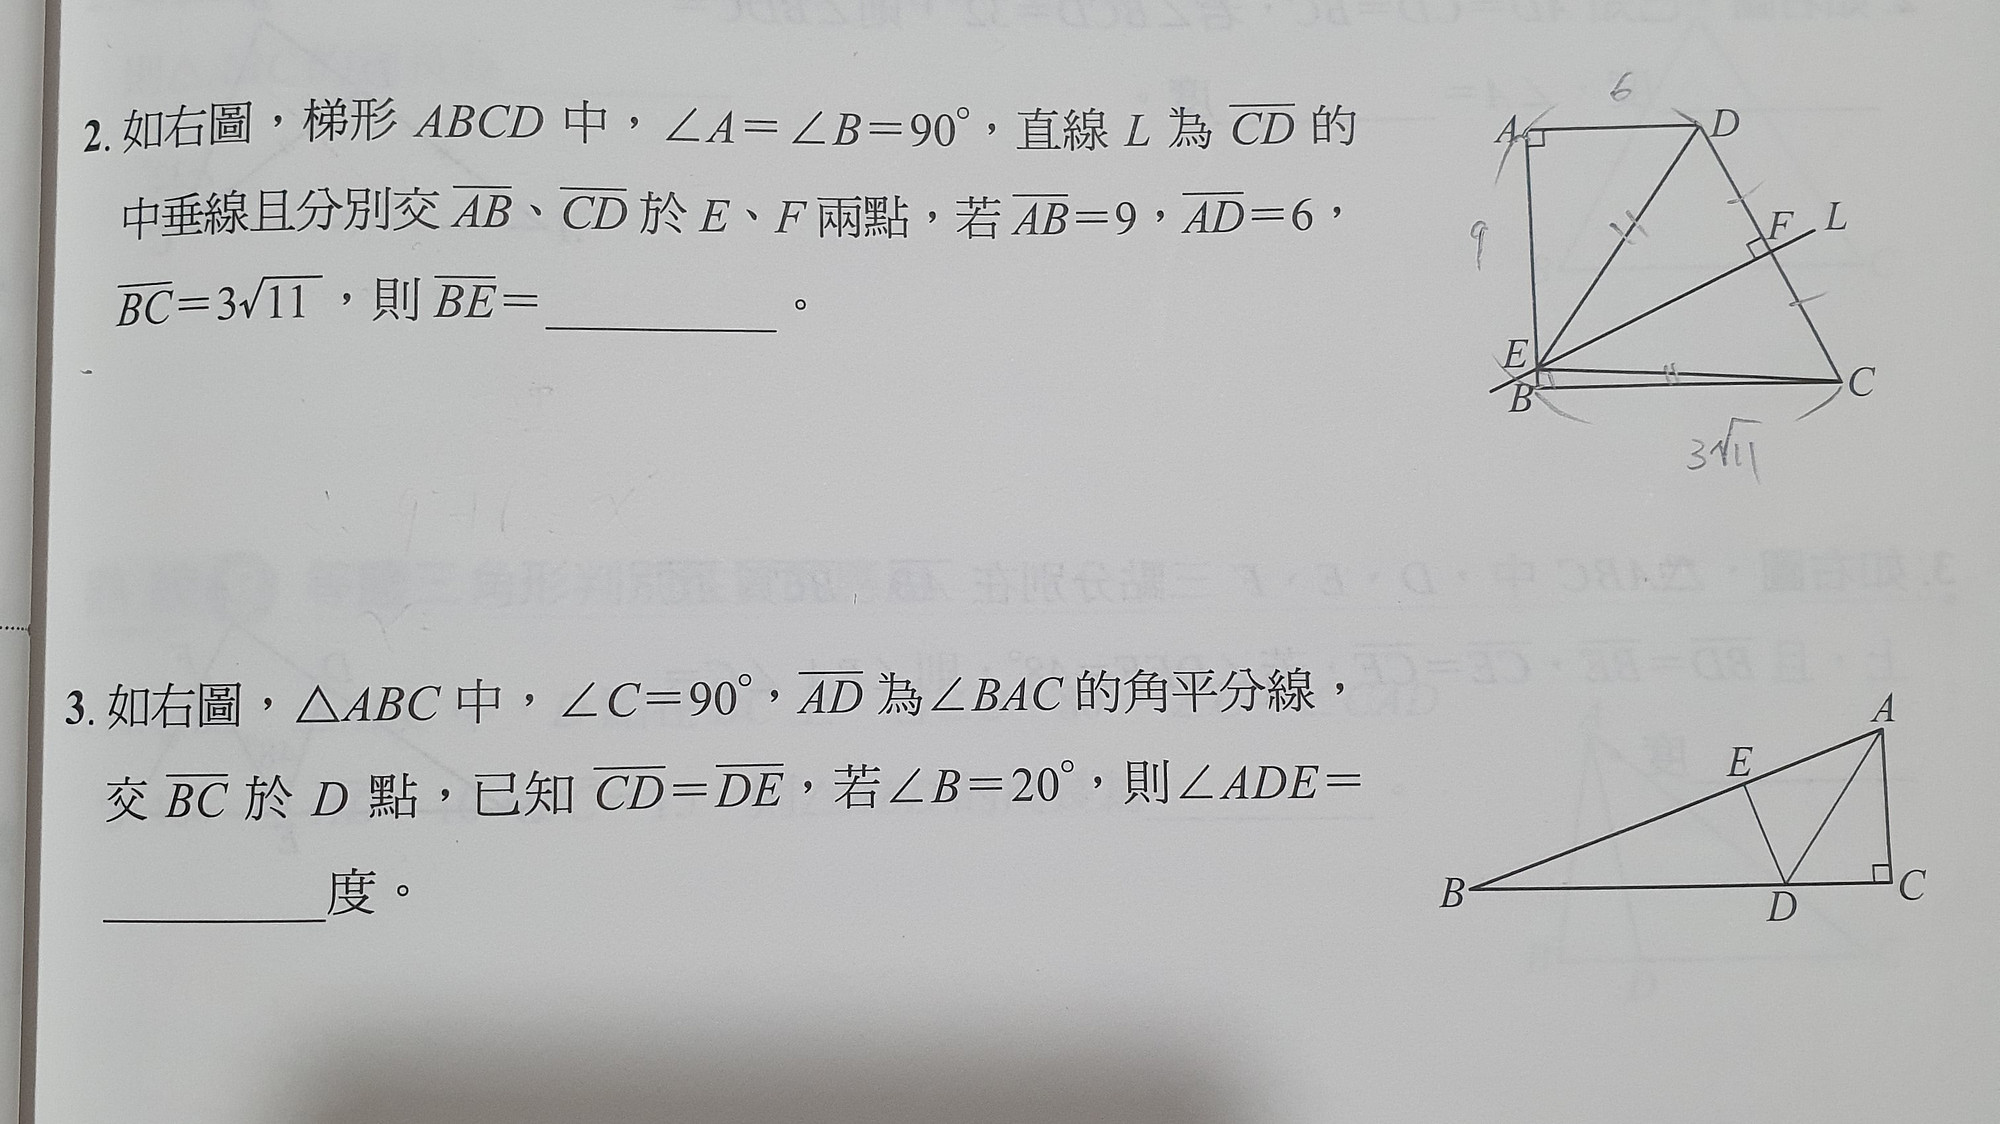 2. 如右圖，梯形 ABCD 中，∠A=∠B=90°，直線 L 為 CD 的
中垂線且分別交 AB、CD 於 E、F 兩點，若 AB=9，AD=6，
BC=3√11，則 BE=________。
6
A
D
9
F
L
E
B
C
3√11
3. 如右圖，△ABC 中，∠C=90°，AD 為∠BAC 的角平分線，
交 BC 於 D 點，已知 CD=DE，若∠B=20°，則∠ADE=
________度。
A
E
B
D
C